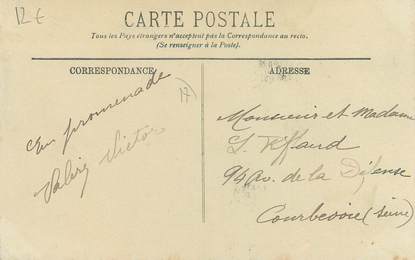 12€
CARTE POSTALE
Tous les Pays étrangers n'acceptent pas la Correspondance au recto.
(Se renseigner à la Poste).
CORRESPONDANCE
En promenade
Valéry Victor
17
ADRESSE
Monsieur et Madame
L. Tiffaud
94 Av. de la Défense
Courbevoie (Seine)